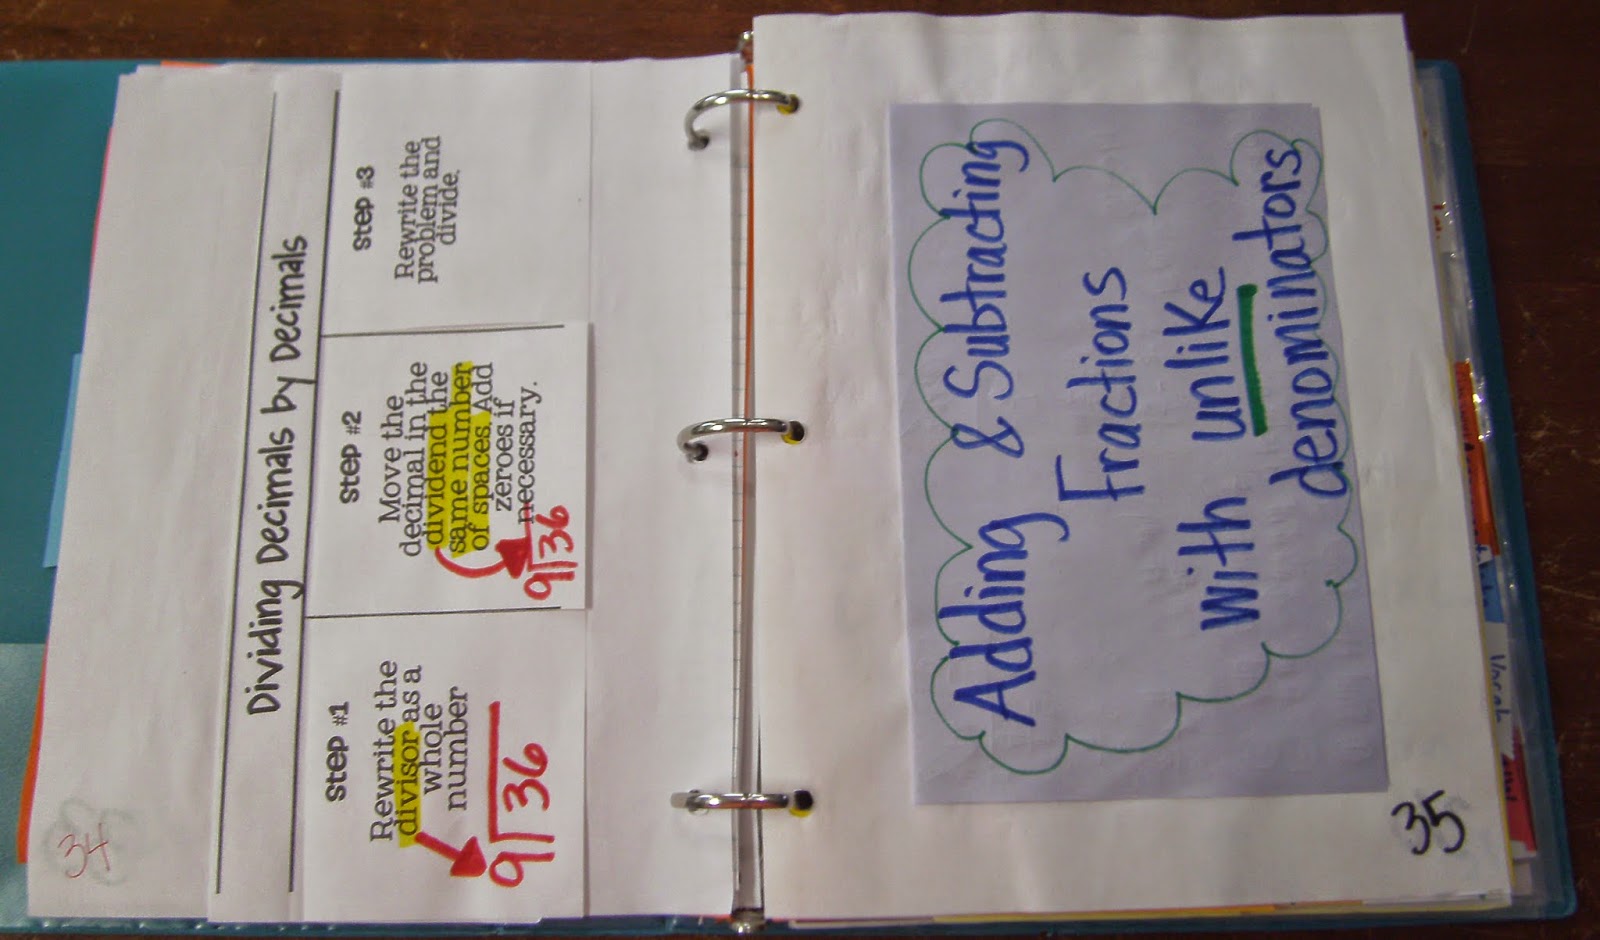 34
Dividing Decimals by Decimals
Step #1
Rewrite the
divisor as a
whole
number
9 36
Step #2
Move the
decimal in the
dividend the
same number
of spaces. Add
zeroes if
necessary.
9 36
Step #3
Rewrite the
problem and
divide.
Adding & Subtracting
Fractions
with unlike
denominators
35